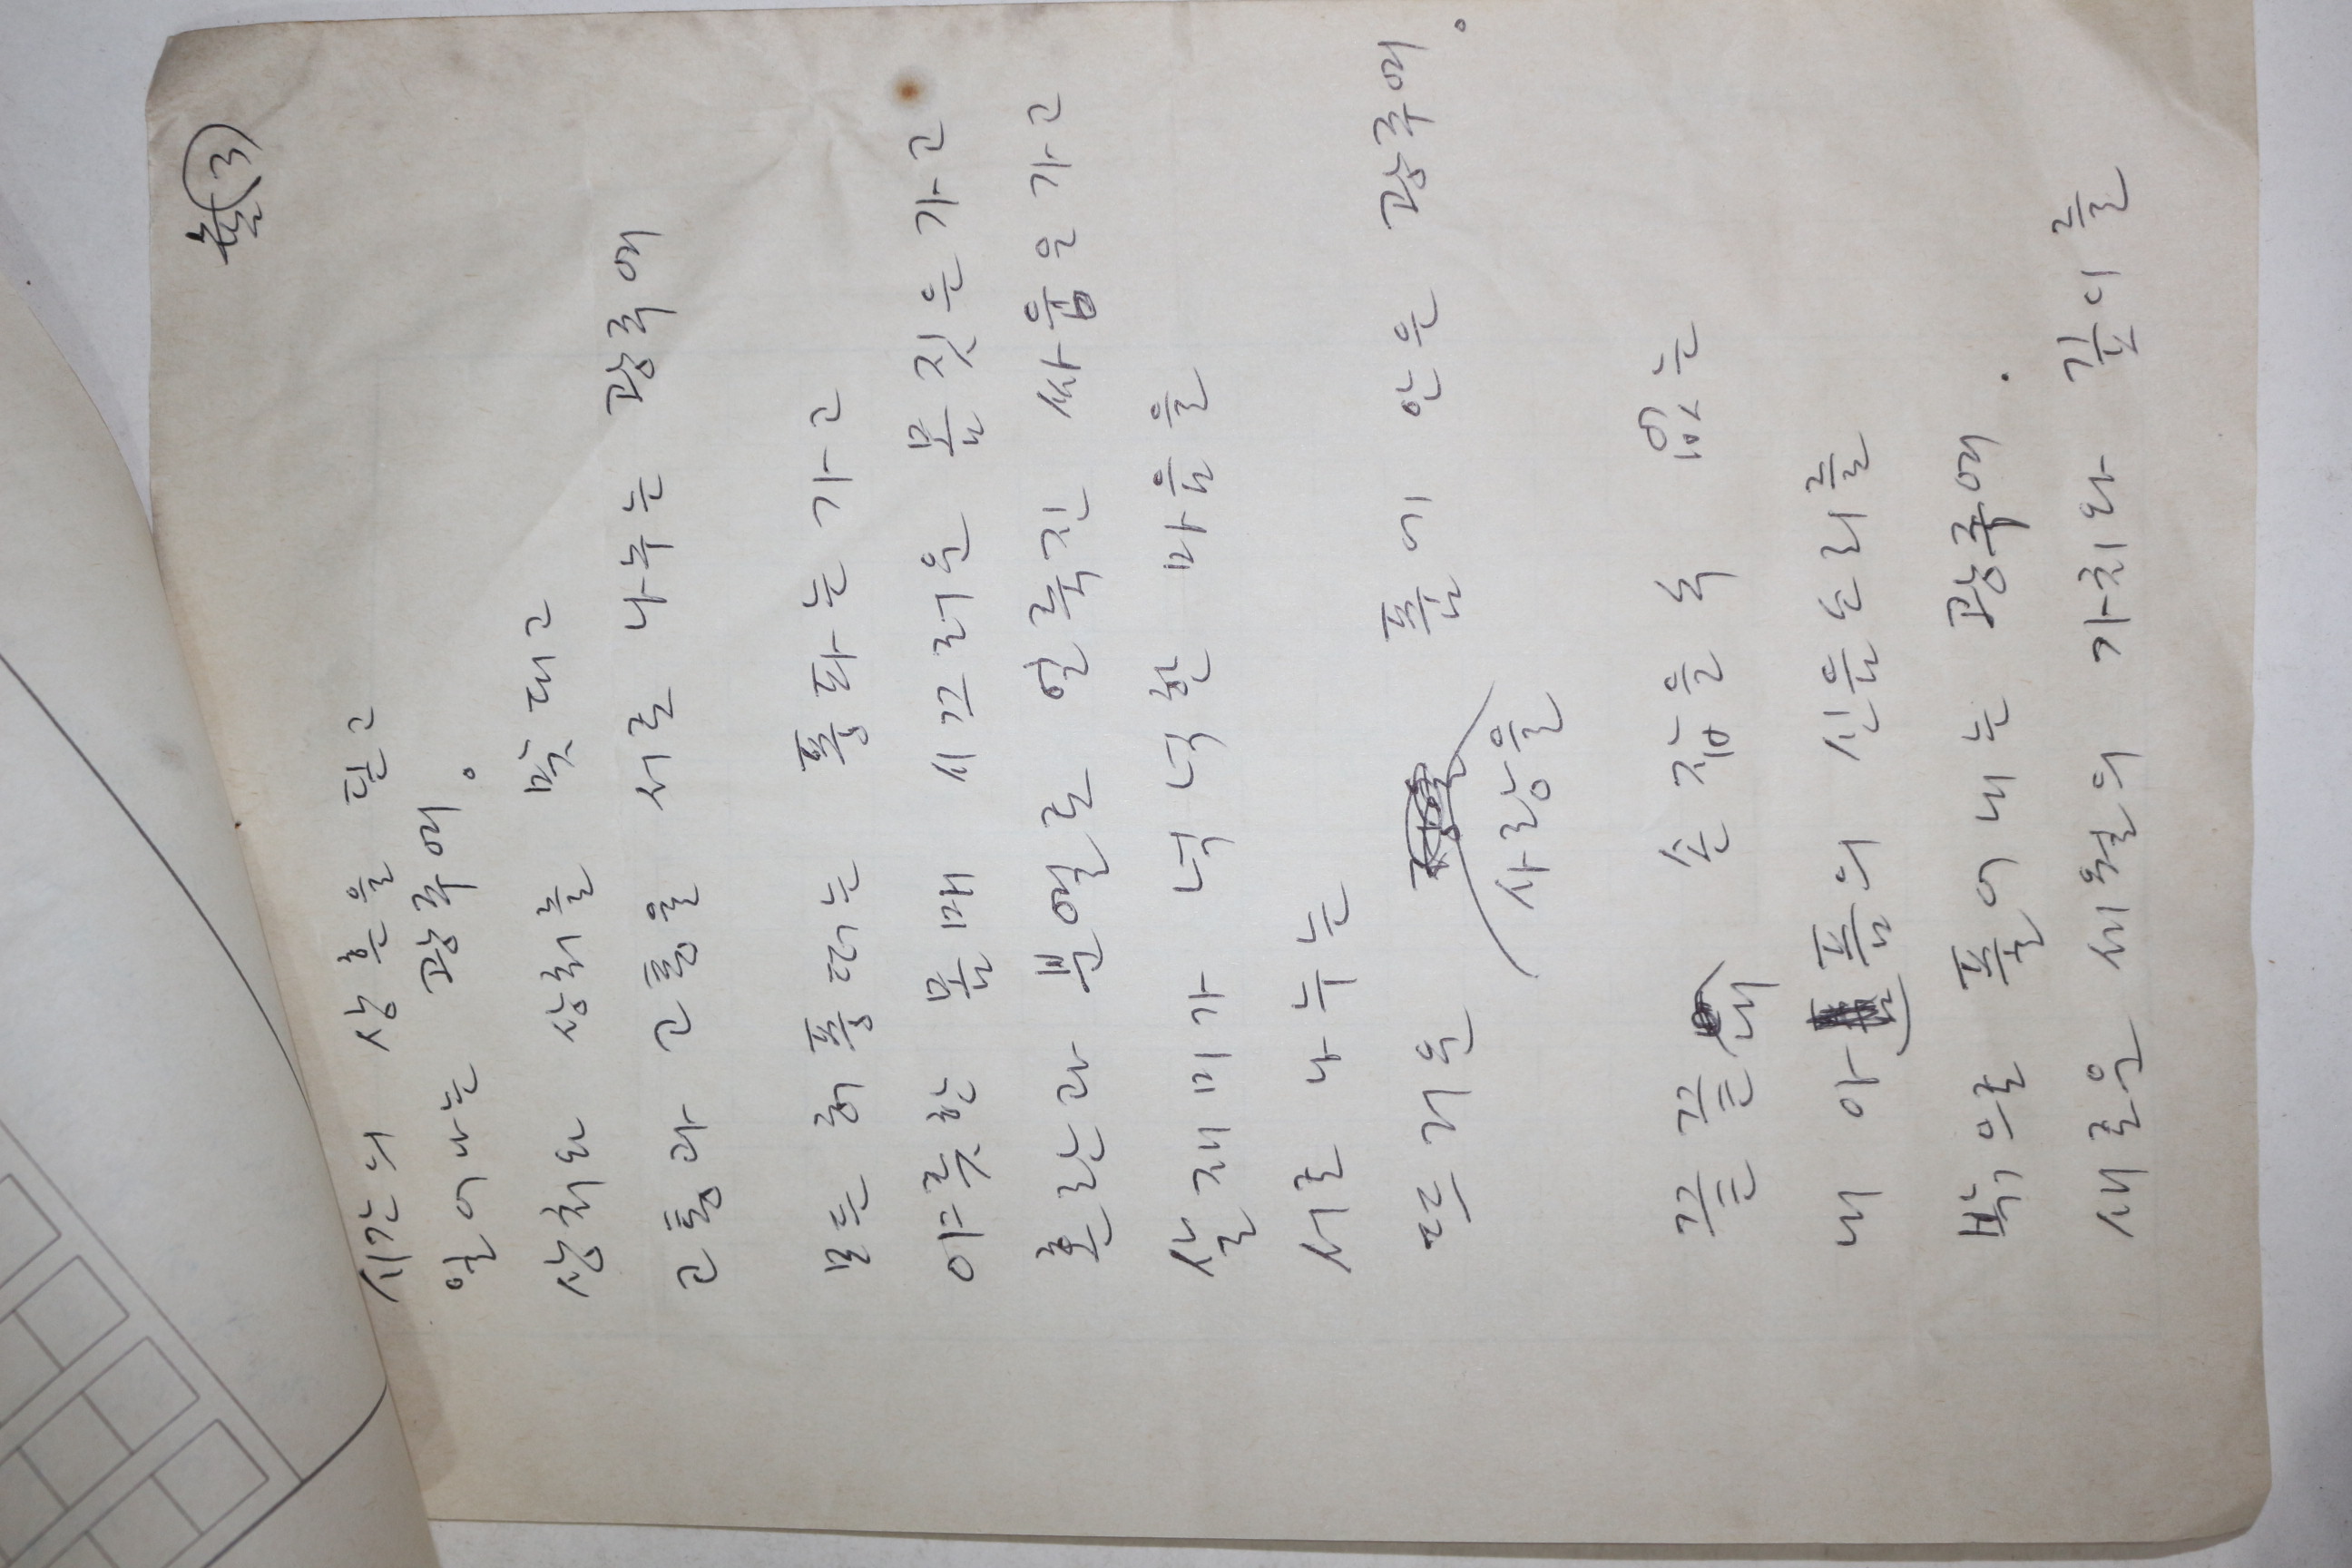 ③
시간의 상흔을 딛고
일어나는 광주여.
상처와 상처를 맞대고
고통과 고통을 서로 나누는 광주여
모든 허풍떠는 풍파는 가고
야릇한 몸매 시끄러운 몸짓은 가고
혼란과 분열로 얼룩진 싸움은 가고
살재미가 넉넉한 마음을
서로 나누는
뜨거운 사랑을 품에 안은 광주여.
끝끝내 손잡을 수 없는
내 아픔의 신음소리를
밖으로 풀어내는 광주여.
새로운 세월의 가치와 깊이를